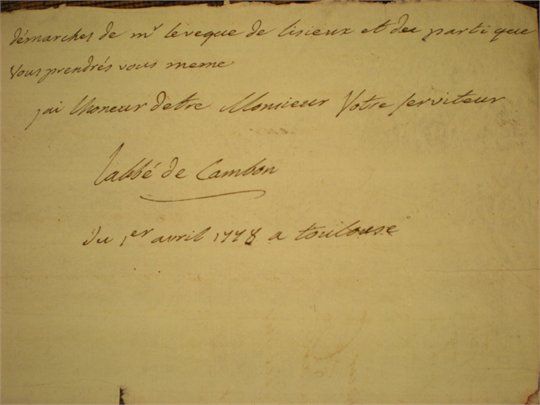 démarches de mr leveque de lisieux et du parti que
vous prendrés vous meme
jai lhoneur detre Monsieur Votre serviteur
labbé de Cambon
du 1er avril 1778 a toulouse